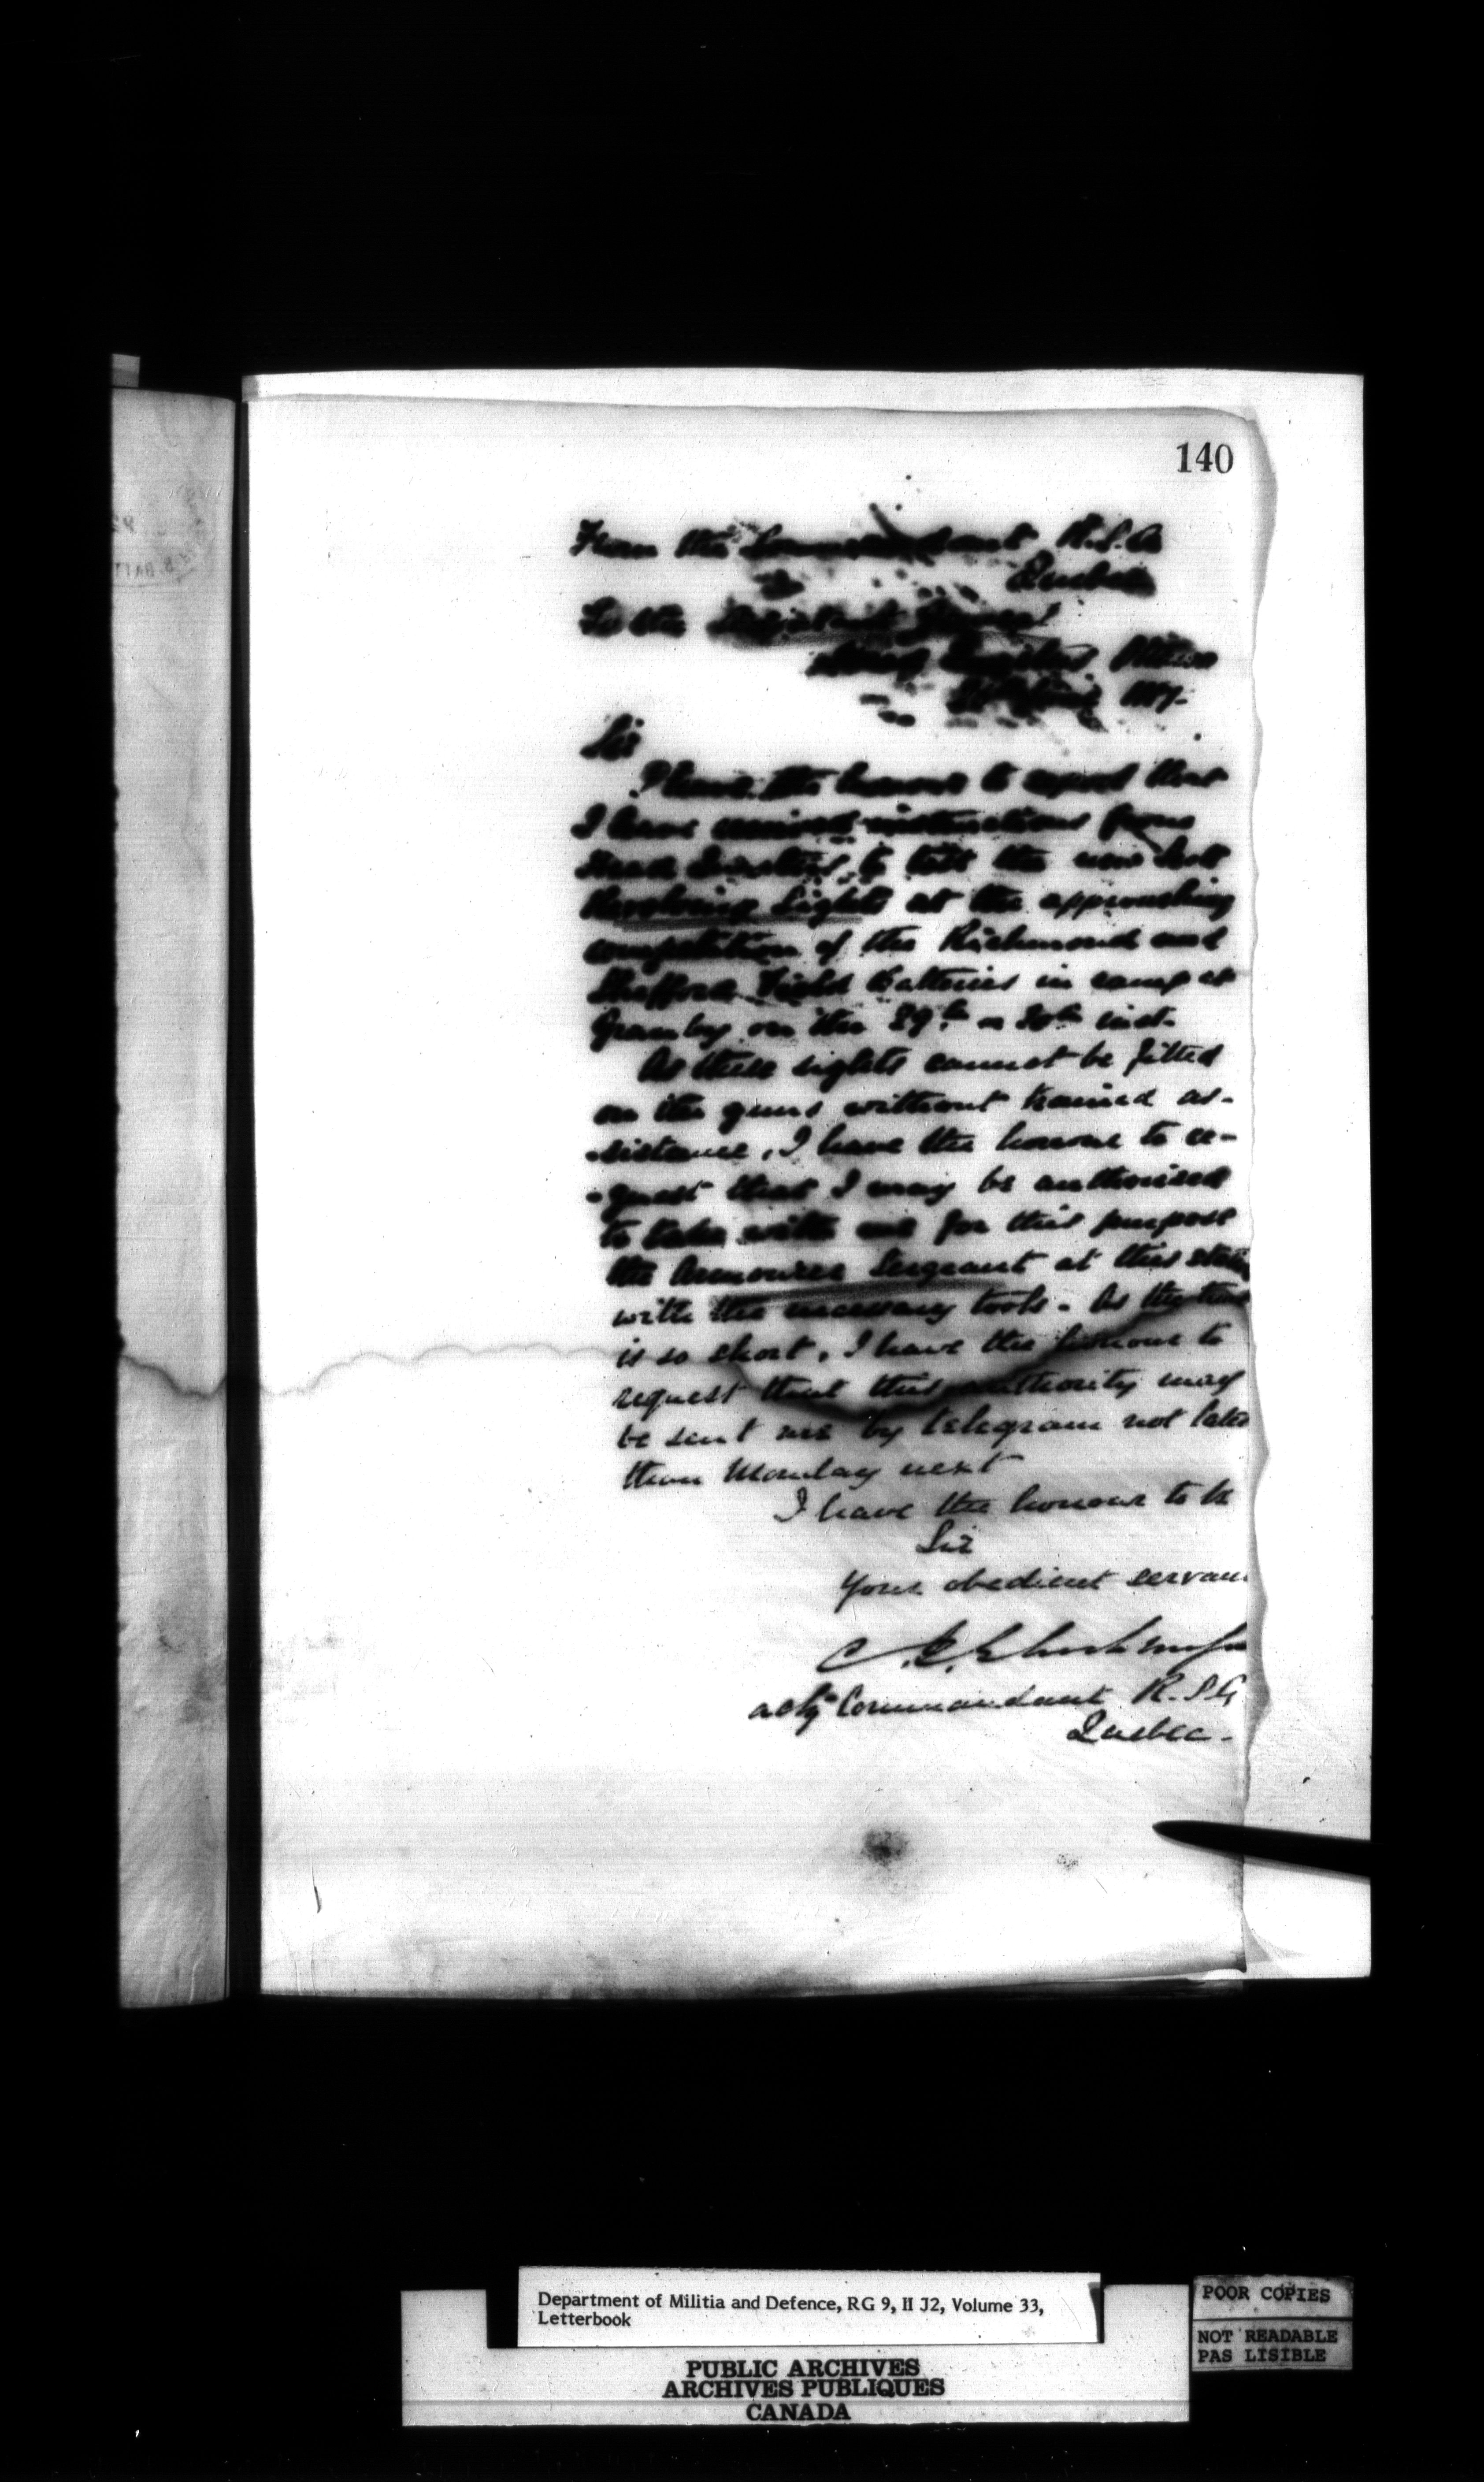 140
From the Commandant R.S.A
Quebec
To the Adjutant General
Head Quarters Ottawa
Sir
I have the honour to report that
I have received instructions from
Head Quarters to test the new
Sights at the approaching
competition of the Richmond and
Shefford Field Batteries in camp at
Granby on the 29th or 30th inst.
As these sights cannot be fitted
on the guns without trained as-
-sistance, I have the honour to re-
-quest that I may be authorised
to take with me for this purpose
the Armourer Sergeant at this
with the necessary tools. As the time
is so short, I have the honour to
request that this authority may
be sent me by telegram not later
than Monday next
I have the honour to be
Sir
Your obedient servan
C.E.
actg Commandant R.S.A
Quebec.
Department of Militia and Defence, RG 9, II J2, Volume 33,
Letterbook
PUBLIC ARCHIVES
ARCHIVES PUBLIQUES
CANADA
POOR COPIES
NOT READABLE
PAS LISIBLE